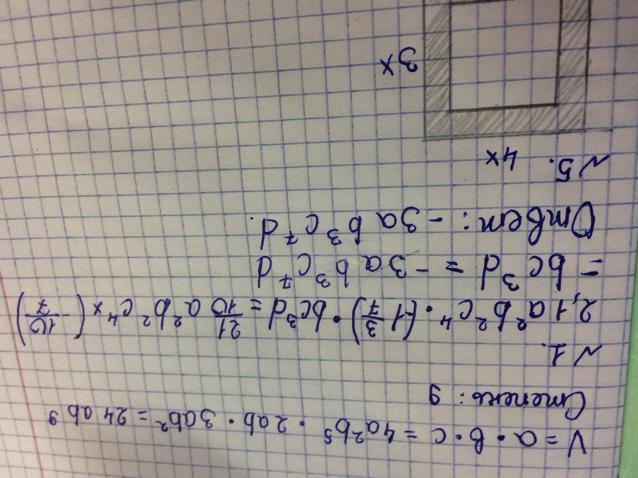 V = a · b · c = 4a²b⁵ · 2ab · 3ab² = 24ab⁹
Степень: 9
№1.
2,1a²b²c⁴ · (-1 3/7) · bc³d = 21/10 a²b²c⁴ × (-10/7)
= bc³d = -3ab³c⁷d
Ответ: -3ab³c⁷d.
№5.
4x
3x